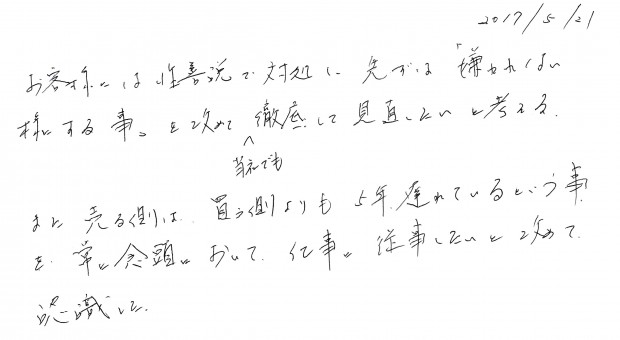 2017/5/21
お客様には性善説で対処し、先ずは「嫌われない
様にする事」を改めて徹底して見直したいと考える。
当社でも
また売る側は、買う側よりも5年、遅れているという事
を、常に念頭において、仕事に従事したいと改めて
認識した。